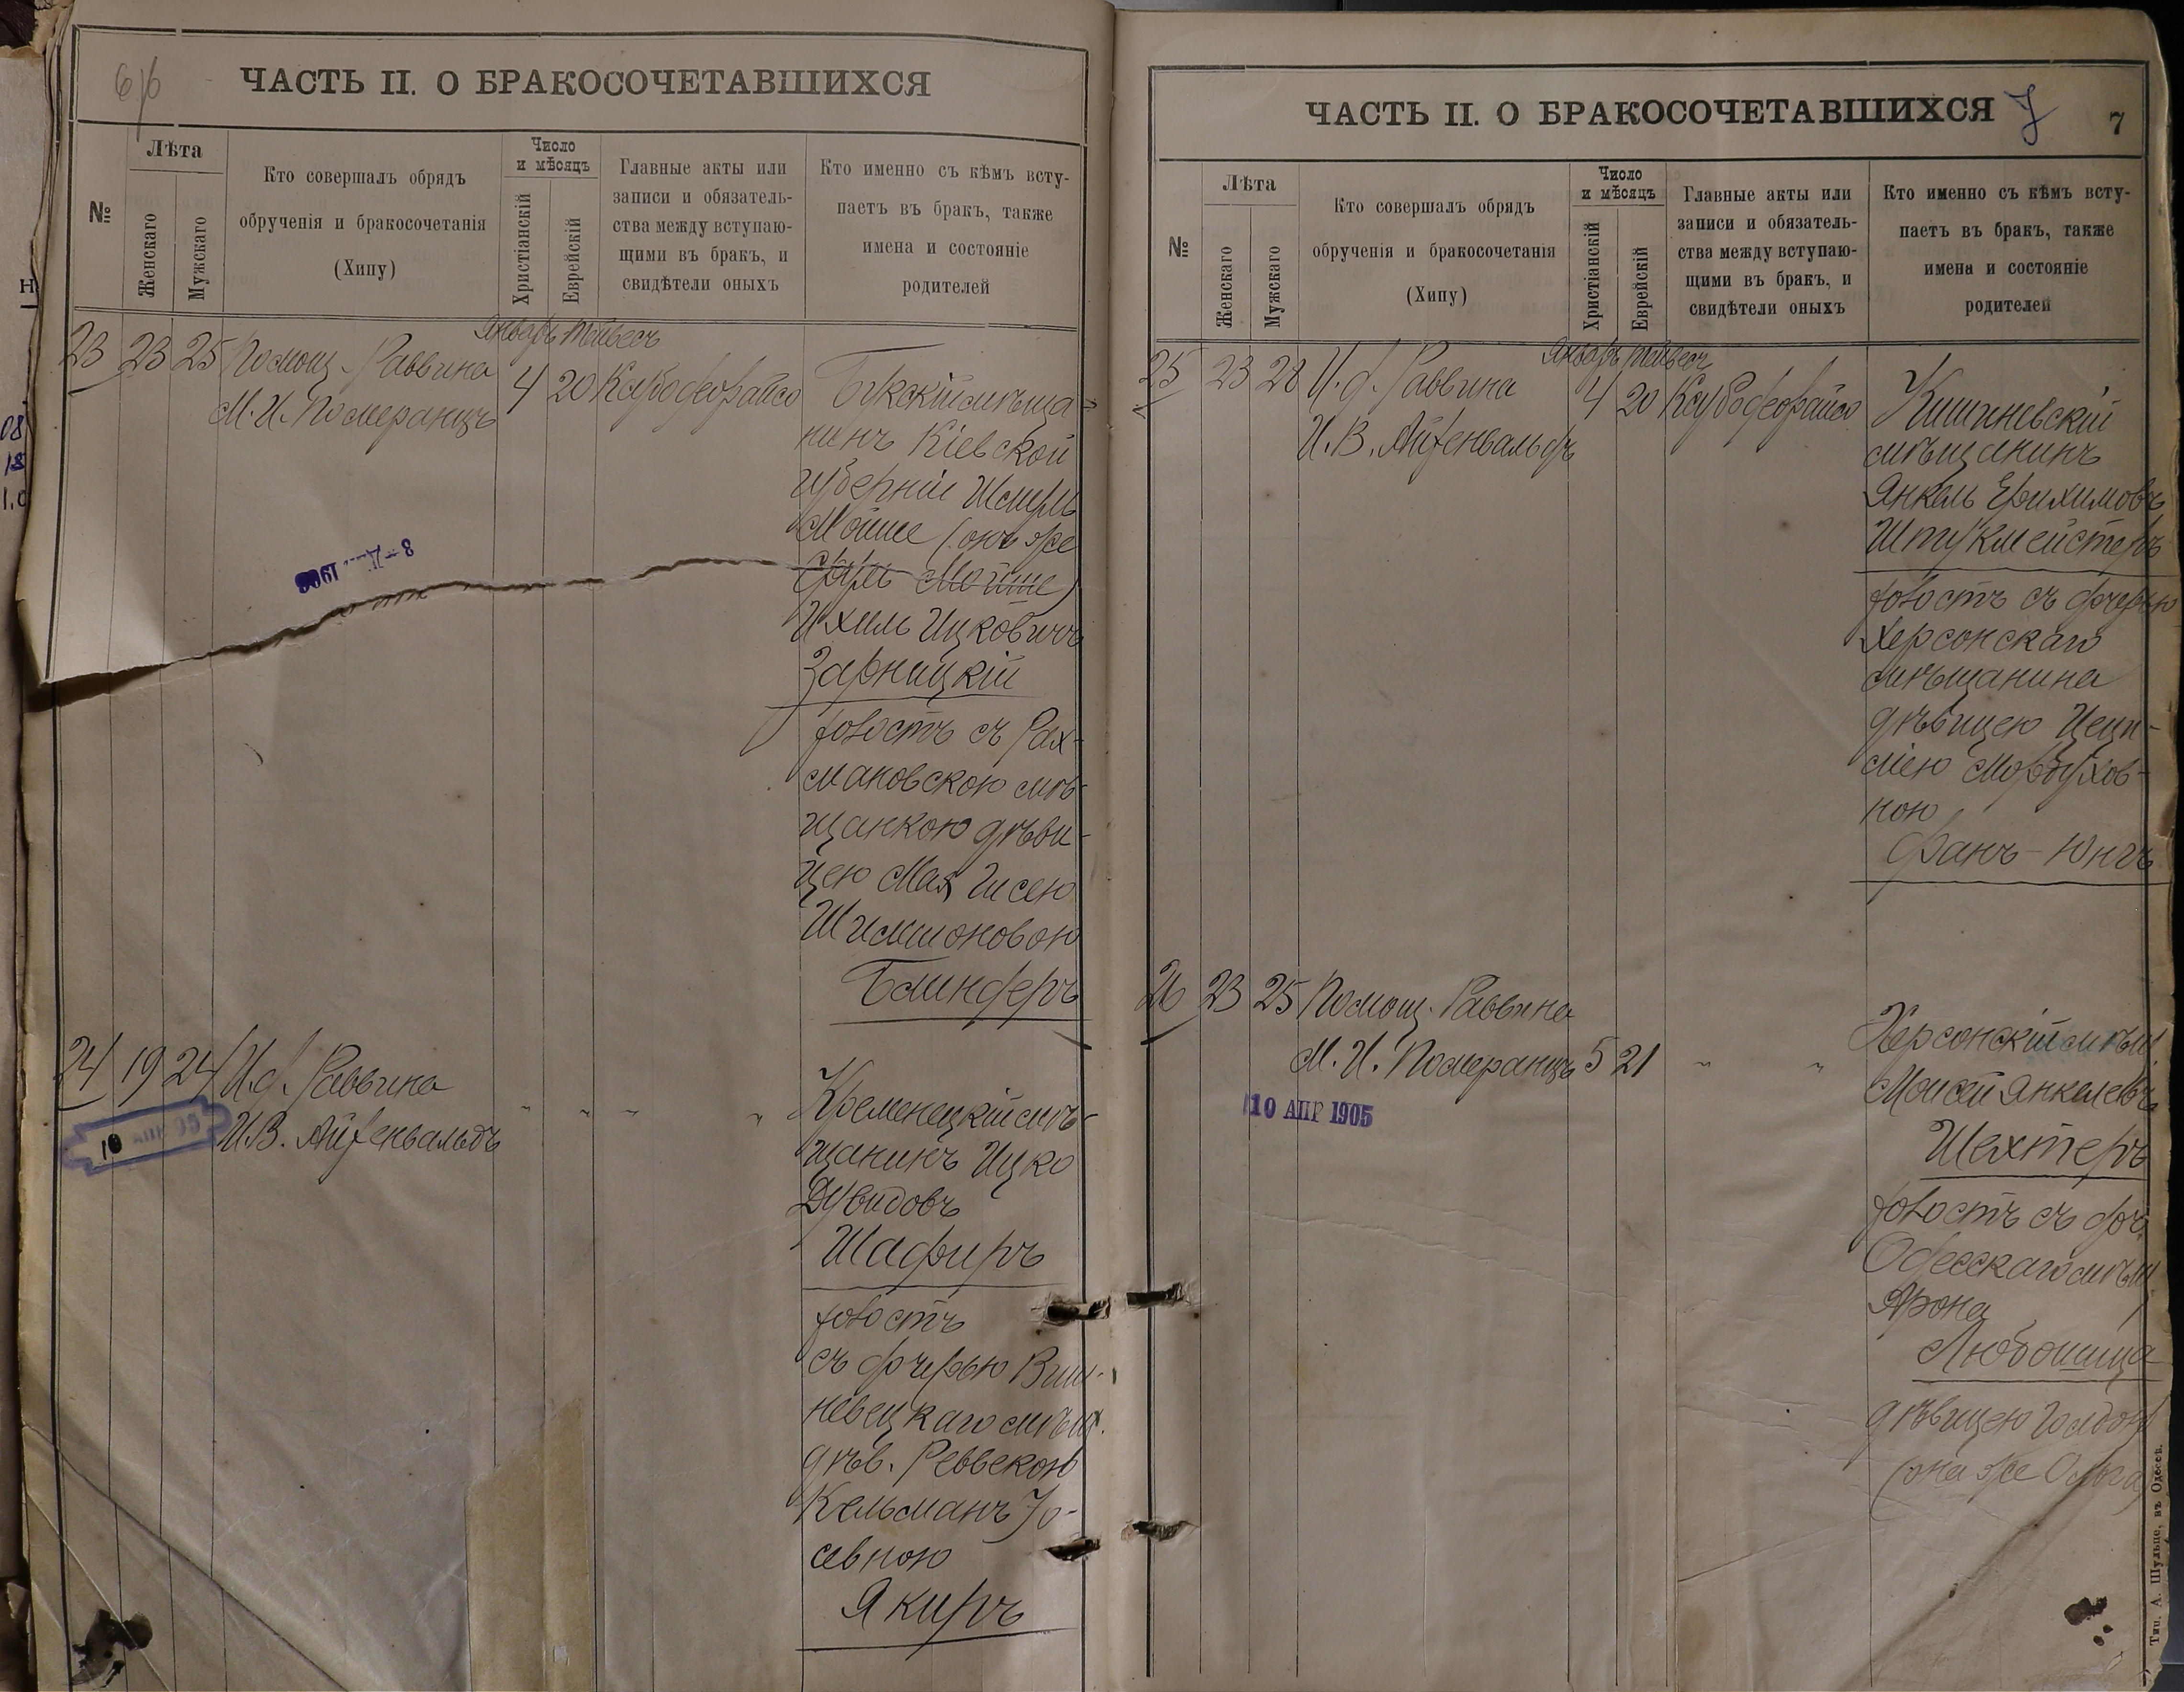 6/6
ЧАСТЬ II. О БРАКОСОЧЕТАВШИХСЯ
№
Лѣта
Женскаго
Мужскаго
Кто совершалъ обрядъ
обрученія и бракосочетанія
(Хипу)
Число
и мѣсяцъ
Христіанскій
Еврейскій
Главные акты или
записи и обязатель-
ства между вступаю-
щими въ бракъ, и
свидѣтели оныхъ
Кто именно съ кѣмъ всту-
паетъ въ бракъ, также
имена и состояніе
родителей
Январь Тейвесъ
23 23 25 Помощ. Раввина
М. И. Померанцъ
4 20
мѣща-
нинъ Кіевской
губерніи Шмиль
Мойше (онъ же
Сруль Мойше)
Ихиль Ицковичъ
Зарницкій
холостъ съ Рах-
мановскою мѣ-
щанкою дѣви-
цею
Шимшоновою
Блиндеръ
24 19 24 И. д. Раввина
И. В. Айзенвальдъ
" " " "
Кременецкій мѣ-
щанинъ Ицко
Дувидовъ
Шафиръ
холостъ
съ дочерью Виш-
невецкаго мѣщ.
дѣв. Реввекою
Кельманъ Іо-
севною
Якиръ
ЧАСТЬ II. О БРАКОСОЧЕТАВШИХСЯ
7
7
№
Лѣта
Женскаго
Мужскаго
Кто совершалъ обрядъ
обрученія и бракосочетанія
(Хипу)
Число
и мѣсяцъ
Христіанскій
Еврейскій
Главные акты или
записи и обязатель-
ства между вступаю-
щими въ бракъ, и
свидѣтели оныхъ
Кто именно съ кѣмъ всту-
паетъ въ бракъ, также
имена и состояніе
родителей
Январь Тейвесъ
25 23 28 И. д. Раввина
И. В. Айзенвальдъ
4 20
Кишиневскій
мѣщанинъ
Янкель Ерихимовъ
Штукмейстеръ
холостъ съ дочерью
Херсонскаго
мѣщанина
дѣвицею Цеци-
ліею Мордухов-
ною
Фанъ-Юнгъ
26 23 25 Помощ. Раввина
М. И. Померанцъ 5 21 " "
10 АПР 1905
Херсонскій мѣщ.
Моисей Янкелевъ
Шехтеръ
холостъ съ доч.
Одесскаго мѣщ.
Арона
Любошица
дѣвицею Голдою
(она же Ольга)
Тип. А. Шульце, въ Одессѣ.